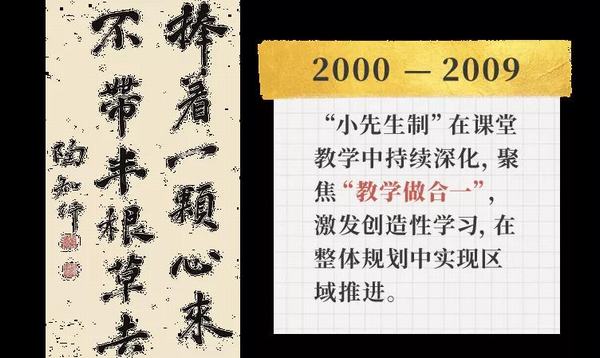 捧着一顆心來
不帶半根草去
陶知行
2000 — 2009
“小先生制”在课堂
教学中持续深化, 聚
焦“教学做合一”,
激发创造性学习, 在
整体规划中实现区
域推进。